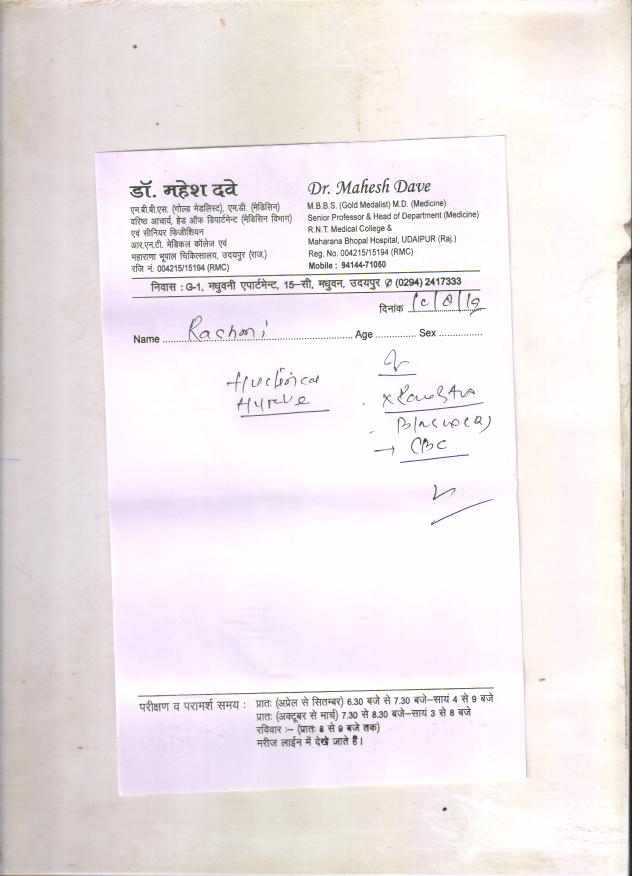 डॉ. महेश दवे
एम.बी.बी.एस. (गोल्ड मेडलिस्ट), एम.डी. (मेडिसिन)
वरिष्ठ आचार्य, हेड ऑफ डिपार्टमेन्ट (मेडिसिन विभाग)
एवं सीनियर फिजीशियन
आर.एन.टी. मेडिकल कॉलेज एवं
महाराणा भूपाल चिकित्सालय, उदयपुर (राज.)
रजि नं. 004215/15194 (RMC)
Dr. Mahesh Dave
M.B.B.S. (Gold Medalist) M.D. (Medicine)
Senior Professor & Head of Department (Medicine)
R.N.T. Medical College &
Maharana Bhopal Hospital, UDAIPUR (Raj.)
Reg. No. 004215/15194 (RMC)
Mobile : 94144-71050
निवास : G-1, मधुवनी एपार्टमेन्ट, 15-सी, मधुवन, उदयपुर ✆ (0294) 2417333
दिनांक
Name ........ Age ........ Sex ........
→ CBC
परीक्षण व परामर्श समय : प्रातः (अप्रेल से सितम्बर) 6.30 बजे से 7.30 बजे-सायं 4 से 9 बजे
प्रातः (अक्टूबर से मार्च) 7.30 से 8.30 बजे-सायं 3 से 8 बजे
रविवार :- (प्रातः 8 से 9 बजे तक)
मरीज लाईन में देखे जाते हैं।